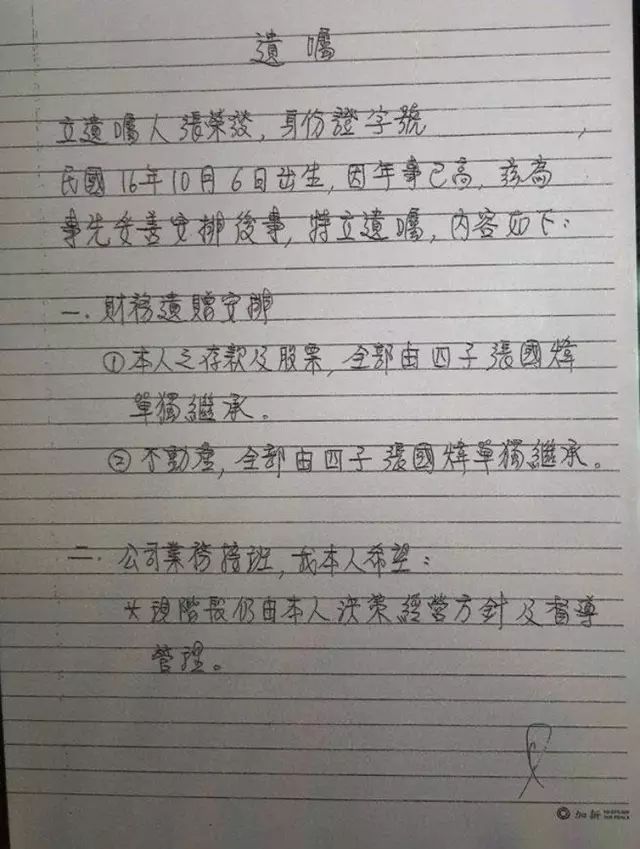 遺囑
立遺囑人張榮發，身份證字號　　　　　，
民國16年10月6日出生，因年事已高，茲為
事先妥善安排後事，特立遺囑，內容如下：
一．財務遺贈安排
①本人之存款及股票，全部由四子張國煒
單獨繼承。
②不動產，全部由四子張國煒單獨繼承。
二．公司業務接班，我本人希望：
*現階段仍由本人決策經營方針及督導
管理。
加新